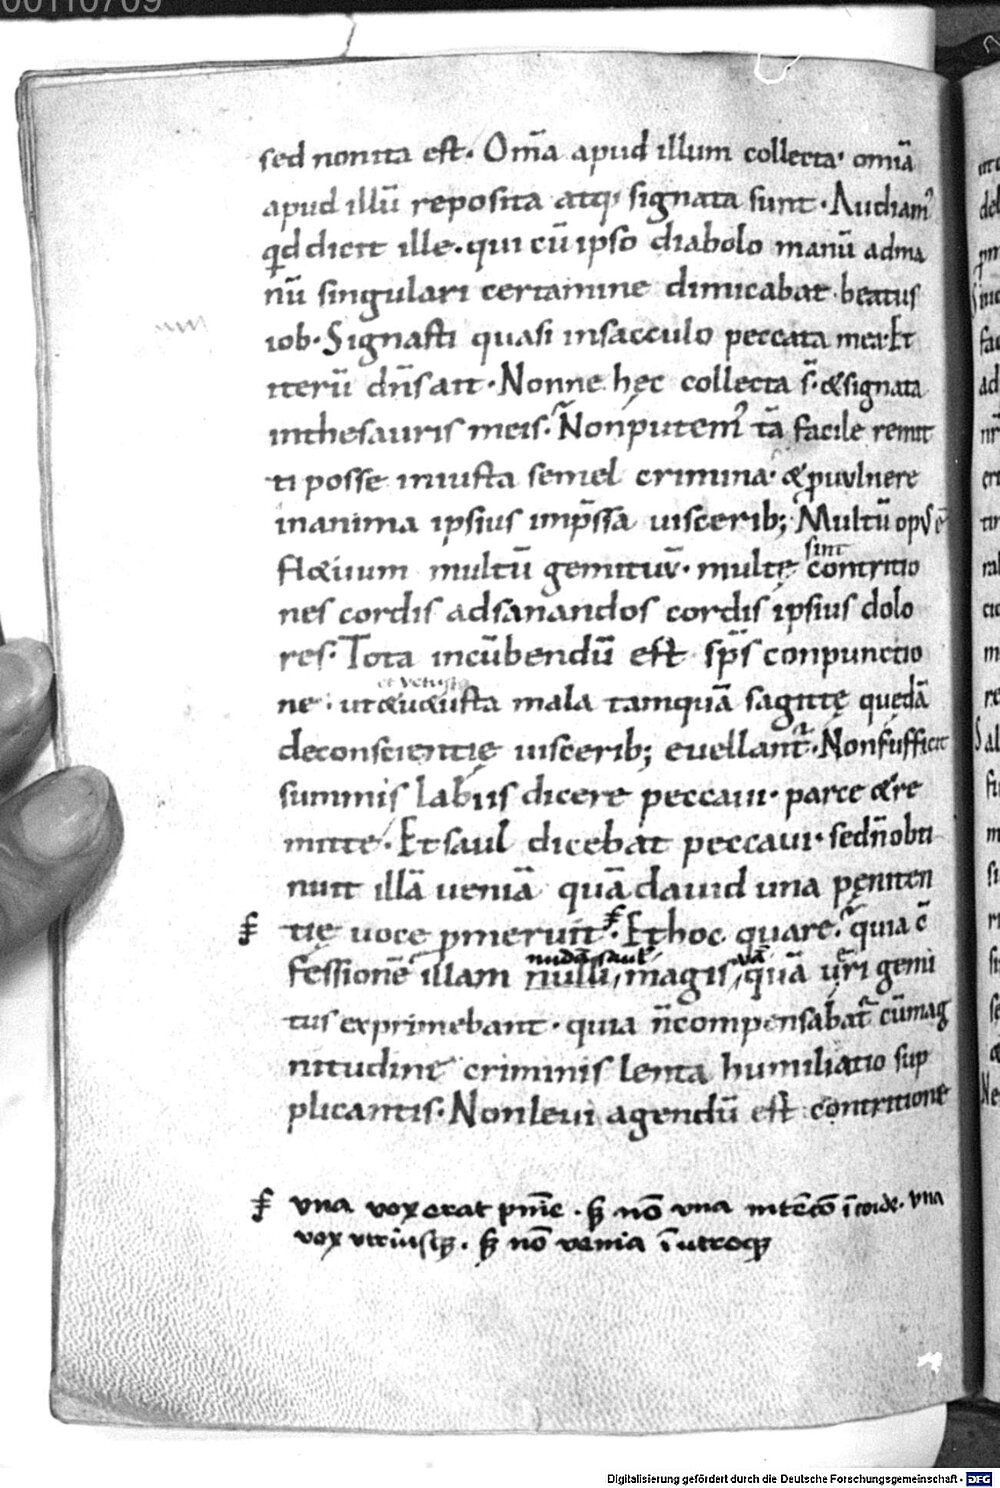 00110709
sed non ita est. Om̄a apud illum collecta. omīa
apud illū reposita atq; signata sunt. Audiam᾿
qd dicit ille. qui cū ipso diabolo manū ad ma
nū singulari certamine dimicabat. beatus
iob. Signasti quasi insacculo peccata mea. Et
iterū dn̄s ait. Nonne hęc collecta s̄. & signata
inthesauris meis. Nonputem᾿ tā facile remit
ti posse iniusta semel crimina. & p uulnere
inanima ipsius imp̄ssa uiscerib; Multū opus ē
fl&iuum multū gemituū. multę sint contritio
nes cordis adsanandos cordis ipsius dolo
res. Tota incūbendū est sp̄s conpunctio
ne. ut & u&usta mala tamquā sagittę quędā
et vetusta
deconscientię uiscerib; euellant᾿. Nonsufficit
summis labiis dicere peccaui. parce & re
mitte. Et saul dicebat peccaui. sed n̄ obti
nuit illā ueniā quā dauid una pęniten
tię uoce p̄meruit. Et hoc quare. quia c̄
fessionē illam nulli, magis, quā ueri gemi
nudā saul
tus exprimebant. quia n̄ compensabat᾿ cū mag
nitudine criminis lenta humiliatio sup
plicantis. Nonleui agendū est contritione
vna vox erat pn̄ie. sꝫ nō vna intēcō ī corde. vna
vox vtriusqꝫ. sꝫ nō venia ī utroqꝫ
Digitalisierung gefördert durch die Deutsche Forschungsgemeinschaft - DFG